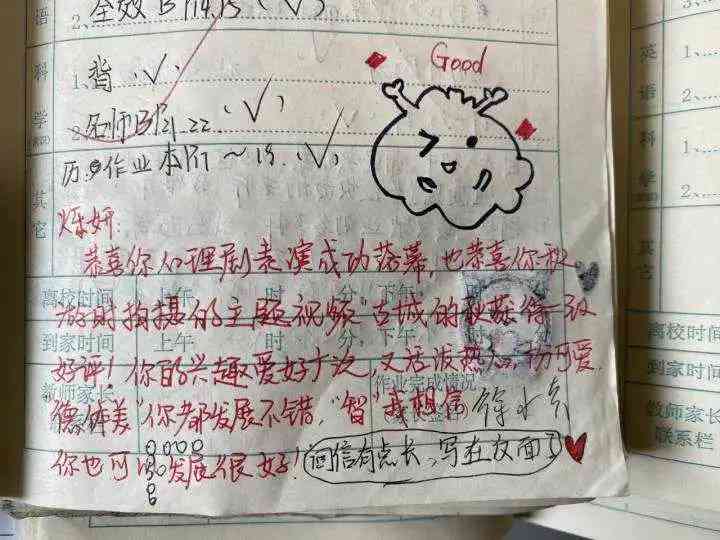 语
2、全效 B P14.15 (√)
科 1、背 (√)
学 2、名师B P21.22 (√)
历:作业本P17~19.(√)
其
它
Good
烁妍:
恭喜你心理剧表演成功落幕,也恭喜你秋
游时拍摄的主题视频"古城的秋"获得一致
好评!你的兴趣爱好广次,又活泼热心,可爱.
德体美"你都发展不错,"智"我想信
你也可以发展很好!
回信有点长,写在反面了
离校时间 上午 时 分,下午 时 分
到家时间 上午 时 分,下午 时 分
教师家长
作业完成情况
英
语
1、
2、
科
学
1、
2、
其
它
离校时间
到家时间
教师家长
联系栏